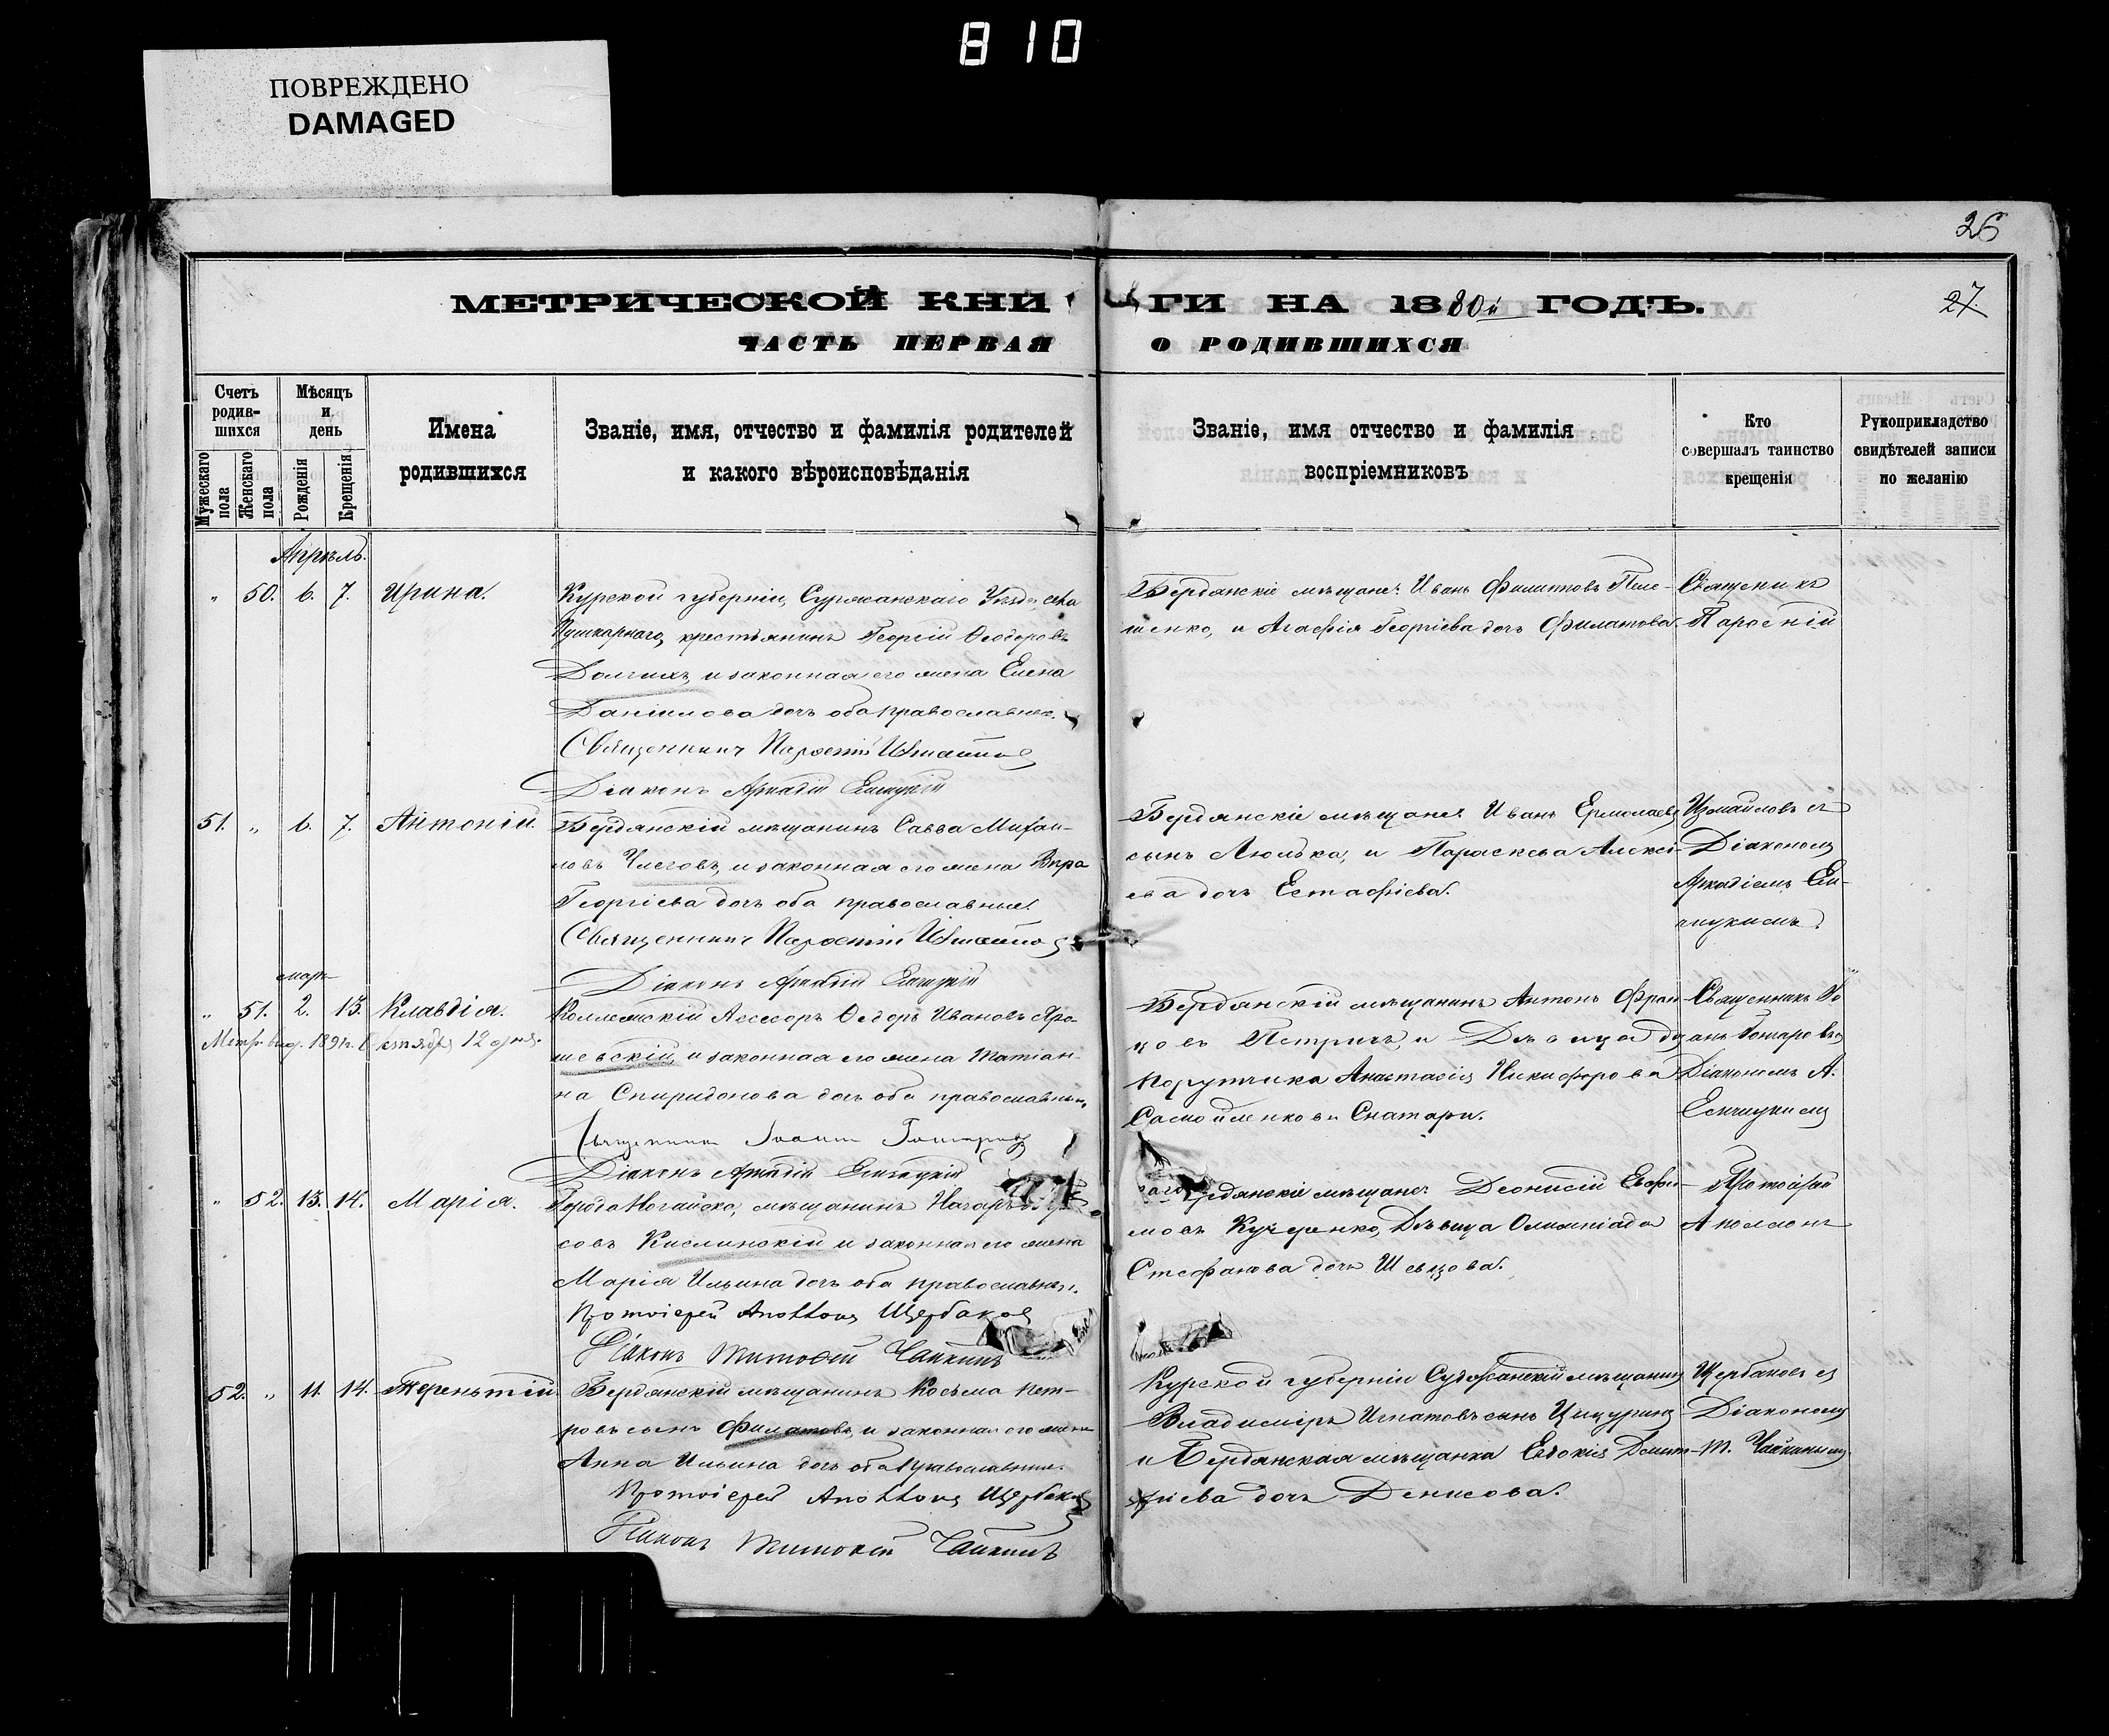 810
ПОВРЕЖДЕНО
DAMAGED
26
МЕТРИЧЕСКОЙ КНИ ГИ НА 1880й ГОДЪ.
27.
ЧАСТЬ ПЕРВАЯ О РОДИВШИХСЯ
Счетъ родив-шихся
Мужескаго пола
Женскаго пола
Мѣсяцъ и день
Рожденія
Крещенія
Имена
родившихся
Званіе, имя, отчество и фамилія родителей
и какого вѣроисповѣданія
Званіе, имя отчество и фамилія
воспріемниковъ
Кто
совершалъ таинство
крещенія
Рукоприкладство
свидѣтелей записи
по желанію
Апрѣль.
" 50. 6. 7. Ирина.
Курской губерніи, Суджанскаго Уѣзда, села
Пушкарнаго, крестьянинъ Георгій Ѳеодоровъ
Долгихъ, и законная его жена Елена
Даніилова дочь оба православные.
Священникъ Парѳеній Измайловъ
Діаконъ Аркадій
Бердянскіе мѣщане: Иванъ Филипповъ Пеле-
шенко, и Агафія Георгіева дочь Филатова.
Священникъ
Парѳеній
51. " 6. 7. Антоній.
Бердянскій мѣщанинъ Савва Михаи-
ловъ и законная его жена Вѣра
Георгіева дочь оба православные.
Священникъ Парѳеній Измайловъ
Діаконъ Аркадій
Бердянскіе мѣщане: Иванъ Ермолаевъ
сынъ Люлька, и Параскева Алексі-
ева дочь Естафіева.
Измайловъ съ
Діакономъ
Аркадіемъ
мар
" 51. 2. 13. Клавдія.
Метр. выд. 1891г. Октября 12 дня.
Коллежскій Ассесоръ Ѳедоръ Ивановъ Яро-
шевскій, и законная его жена Татіан-
на Спиридонова дочь оба православные.
Священникъ Іоаннъ Гончаровъ
Діаконъ Аркадій
Бердянскій мѣщанинъ Антонъ Фран-
цовъ Петричъ, и Дѣвица дочь
Порутчика Анастасія Никифорова
Снатари.
Священникъ Іо-
аннъ Гончаровъ съ
Діакономъ А.
" 52. 13. 14. Марія.
Города Ногайска, мѣщанинъ Назаръ
совъ Кислинскій и законная его жена
Марія Ильина дочь оба православные.
Протоіерей Аполлонъ Щербаковъ
Діаконъ Тимофей Чайкинъ
Бердянскіе мѣщане: Діонисій Евфи-
мовъ Кучеренко, Дѣвица Олимпіада
Стефанова дочь Шевцова.
Протоіерей
Аполлонъ
52. " 11. 14. Терентій.
Бердянскій мѣщанинъ Косьма Пет-
ровъ сынъ Филатовъ, и законная его жена
Анна Ильина дочь оба православные.
Протоіерей Аполлонъ Щербаковъ
Діаконъ Тимофей Чайкинъ
Курской губерніи Суджанскій мѣщанинъ
Владиміръ Игнатовъ сынъ
и Бердянская мѣщанка Евдокія Димит-
ріева дочь Денисова.
Щербаковъ съ
Діакономъ
Т. Чайкинымъ.